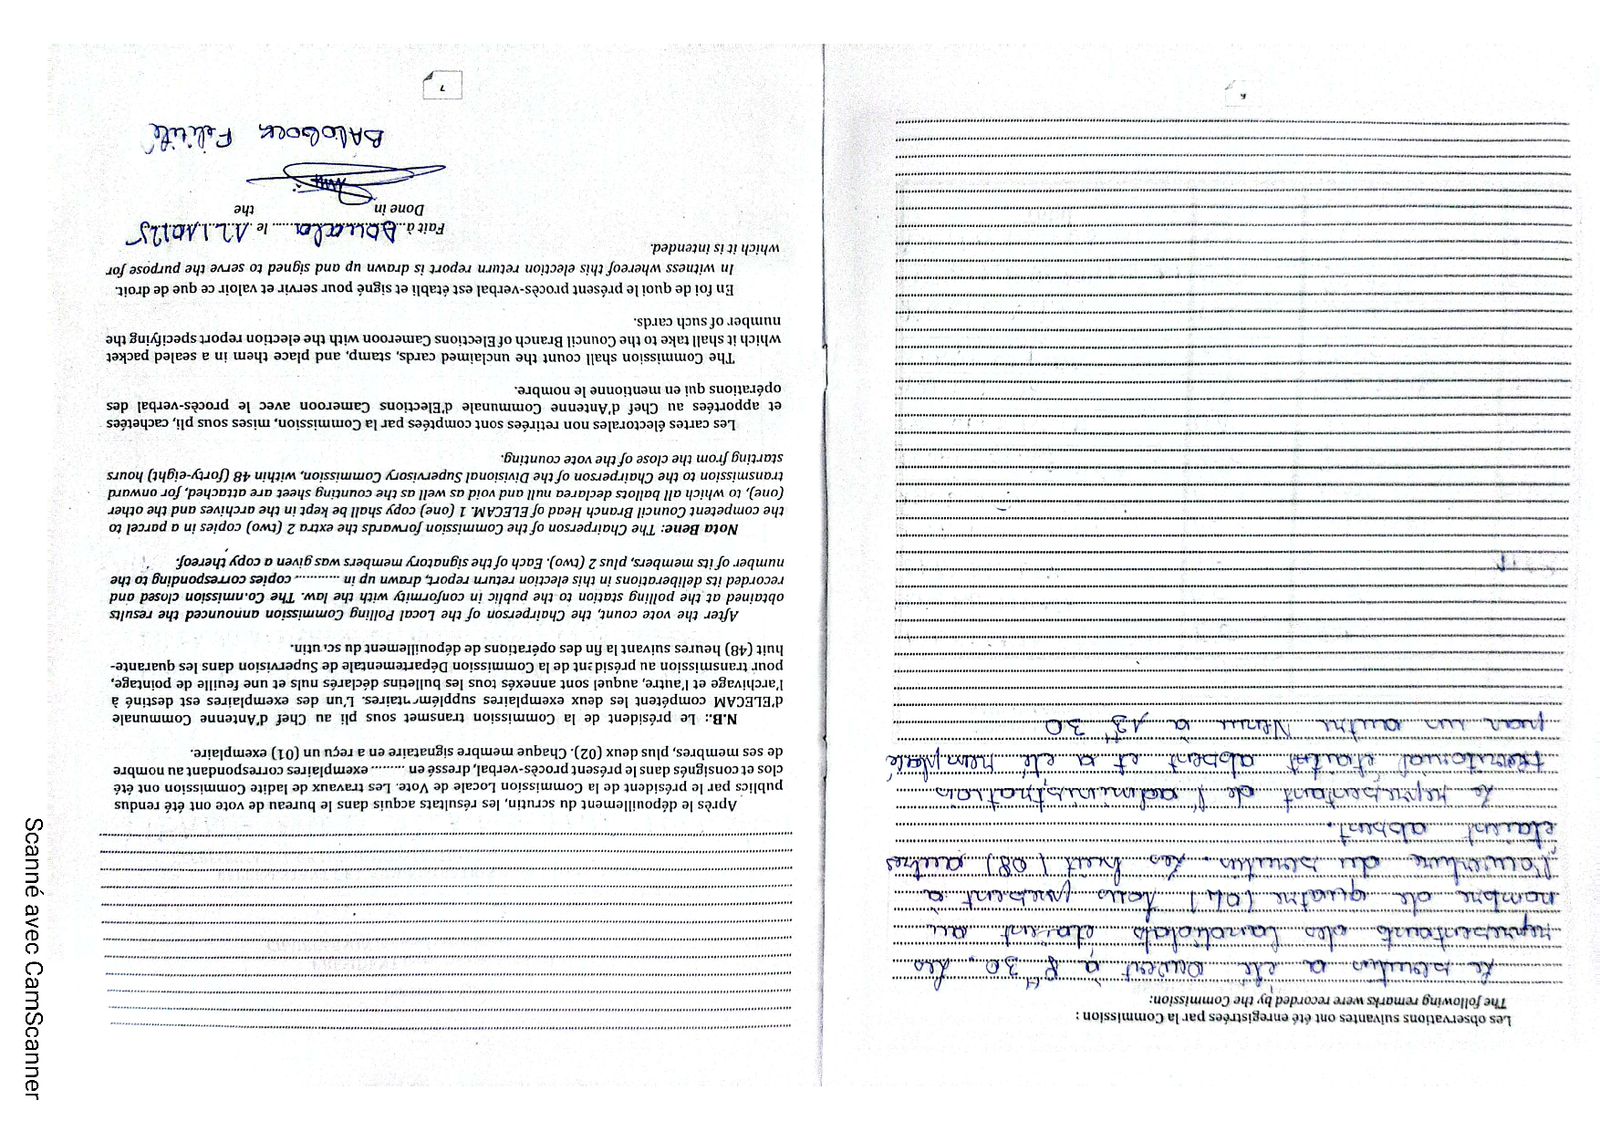 Les observations suivantes ont été enregistrées par la Commission :
The following remarks were recorded by the Commission:
Le scrutin a été ouvert à 8H 30. Les
representants des candidats étaient au
nombre de quatre (04) tous present à
l'ouverture du scrutin. Les huit (08) autres
étaient absent.
Le representant de l'administration
territorial était absent et a été remplacé
par un autre Venu à 13H 30
6
Après le dépouillement du scrutin, les résultats acquis dans le bureau de vote ont été rendus
publics par le président de la Commission Locale de Vote. Les travaux de ladite Commission ont été
clos et consignés dans le présent procès-verbal, dressé en ......... exemplaires correspondant au nombre
de ses membres, plus deux (02). Chaque membre signataire en a reçu un (01) exemplaire.
N.B.: Le président de la Commission transmet sous pli au Chef d'Antenne Communale
d'ELECAM compétent les deux exemplaires supplémentaires. L'un des exemplaires est destiné à
l'archivage et l'autre, auquel sont annexés tous les bulletins déclarés nuls et une feuille de pointage,
pour transmission au président de la Commission Départementale de Supervision dans les quarante-
huit (48) heures suivant la fin des opérations de dépouillement du scrutin.
After the vote count, the Chairperson of the Local Polling Commission announced the results
obtained at the polling station to the public in conformity with the law. The Commission closed and
recorded its deliberations in this election return report, drawn up in ............ copies corresponding to the
number of its members, plus 2 (two). Each of the signatory members was given a copy thereof.
Nota Bene: The Chairperson of the Commission forwards the extra 2 (two) copies in a parcel to
the competent Council Branch Head of ELECAM. 1 (one) copy shall be kept in the archives and the other
(one), to which all ballots declarea null and void as well as the counting sheet are attached, for onward
transmission to the Chairperson of the Divisional Supervisory Commission, within 48 (forty-eight) hours
starting from the close of the vote counting.
Les cartes électorales non retirées sont comptées par la Commission, mises sous pli, cachetées
et apportées au Chef d'Antenne Communale d'Elections Cameroon avec le procès-verbal des
opérations qui en mentionne le nombre.
The Commission shall count the unclaimed cards, stamp, and place them in a sealed packet
which it shall take to the Council Branch of Elections Cameroon with the election report specifying the
number of such cards.
En foi de quoi le présent procès-verbal est établi et signé pour servir et valoir ce que de droit.
In witness whereof this election return report is drawn up and signed to serve the purpose for
which it is intended.
Fait à Douala le 12/10/25
Done in the
BALOGOCK Félicité
7
Scanné avec CamScanner